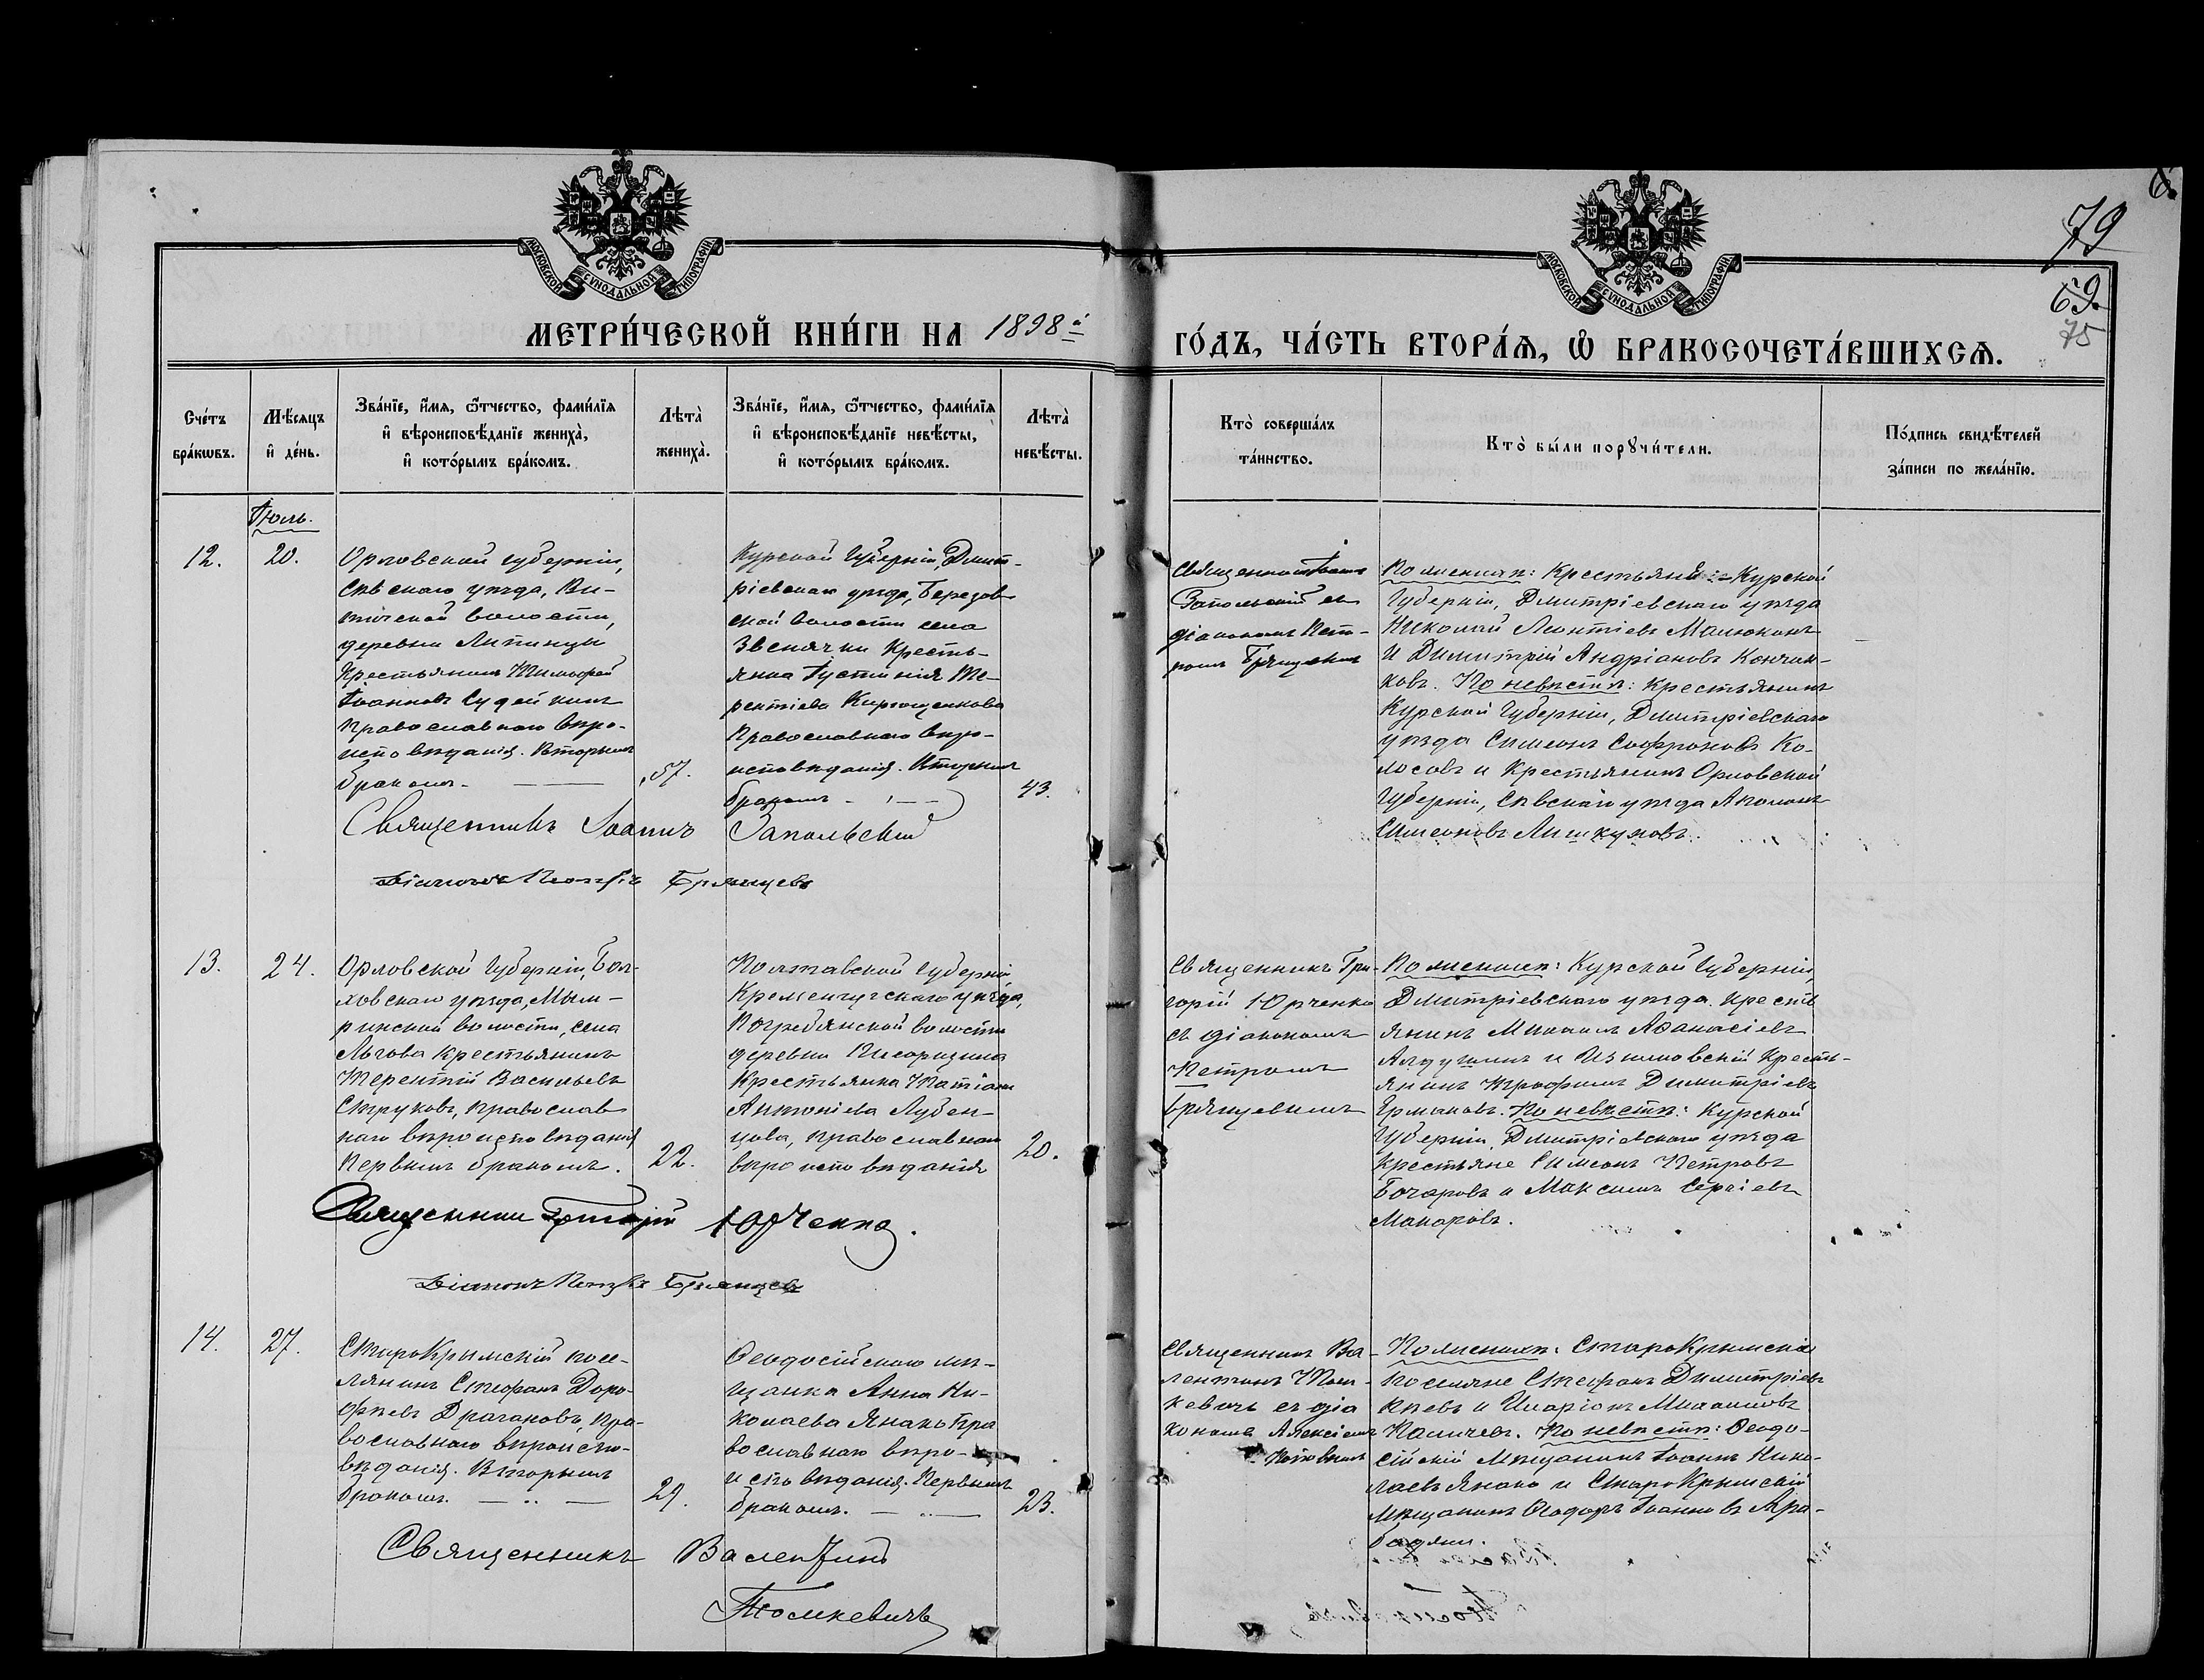 79
69.
75
МОСКОВСКОЙ СѴНОДАЛЬНОЙ ТИПОГРАФІИ
МОСКОВСКОЙ СѴНОДАЛЬНОЙ ТИПОГРАФІИ
МЕТРИ́ЧЕСКОЙ КНИ́ГИ НА 1898 й
ГО́ДЪ, ЧА́СТЬ ВТОРА́Ѧ, Ѿ БРАКОСОЧЕТА́ВШИХСѦ.
Сче́тъ
бра́кѡвъ.
Мѣ́сяцъ
и҆ де́нь.
Зва́нїе, и҆́мѧ, ѻ҆́тчество, фами́лїѧ
и҆ вѣроисповѣ́данїе жениха̀,
и҆ кото́рымъ бра́комъ.
Лѣта̀
жениха̀.
Зва́нїе, и҆́мѧ, ѻ҆́тчество, фами́лїѧ
и҆ вѣроисповѣ́данїе невѣ́сты,
и҆ кото́рымъ бра́комъ.
Лѣта̀
невѣ́сты.
Кто̀ соверша́лъ
та́инство.
Кто̀ бы́ли порꙋчи́тели.
По́дпись свидѣ́телей
за́писи по жела́нїю.
Іюль.
12.
20.
Орловской губерніи,
Сѣвскаго уѣзда,
волости,
деревни
Крестьянинъ Тимофей
Іоанновъ
Православнаго вѣро-
исповѣданія. Вторымъ
бракомъ.
57.
Курской Губерніи, Дмит-
ріевскаго уѣзда, Березов-
ской волости села
Звенячки Кресть-
янка Іустинія Те-
рентіева Кирющенкова
Православнаго вѣро-
исповѣданія. Вторымъ
бракомъ
43.
Священникъ Іоаннъ
Запольскій съ
діакономъ Пет-
ромъ Брянцевымъ
По женихѣ: Крестьяне: Курской
Губерніи, Дмитріевскаго уѣзда
Николай Леонтіевъ Малюкинъ
и Димитрій Андріановъ
ковъ. По невѣстѣ: Крестьянинъ
Курской Губерніи, Дмитріевскаго
уѣзда Симеонъ Софроновъ Ко-
лосовъ и Крестьянинъ Орловской
Губерніи, Сѣвскаго уѣзда
Симеоновъ
Священникъ Іоаннъ Запольскій
Діаконъ Петръ Брянцевъ
13.
24.
Орловской Губерніи, Бол-
ховскаго уѣзда, Мым-
ринской волости, села
Льгова Крестьянинъ
Терентій Васильевъ
Струковъ, православ-
наго вѣроисповѣданія
Первымъ бракомъ.
22.
Полтавской Губерніи
Кременчугскаго уѣзда,
Погребянской волости
деревни
Крестьянка Татіана
Антоніева Лубен-
цова, православнаго
вѣроисповѣданія
20.
Священникъ Гри-
горій Юрченко
съ діакономъ
Петромъ
Брянцевымъ
По женихѣ: Курской Губерніи,
Дмитріевскаго уѣзда. Кресть
янинъ Михаилъ Аѳанасіевъ
Алдушинъ и Изюмовскій Кресть-
янинъ Трофимъ Димитріевъ
Ермаковъ. По невѣстѣ: Курской
Губерніи, Дмитріевскаго уѣзда
Крестьяне Симеонъ Петровъ
Бочаровъ и Максимъ Сергіевъ
Макаровъ.
Священникъ Григорій Юрченко.
Діаконъ Петръ Брянцевъ
14.
27.
СтароКрымскій посе-
лянинъ Стефанъ Доро-
фѣевъ Драгановъ, пра-
вославнаго вѣроиспо-
вѣданія. Вторымъ
бракомъ.
29.
Ѳеодосійскаго мѣ-
щанка Анна Ни-
колаева Янако пра
вославнаго вѣро-
исповѣданія. Первымъ
бракомъ.
23.
Священникъ Ва-
лентинъ Том-
кевичъ съ діа
кономъ Алексіемъ
По женихѣ: СтароКрымскіе
поселяне Стефанъ Димитріевъ
и Иларіонъ Михаиловъ
Каличевъ. По невѣстѣ: Ѳеодо-
сійскій Мѣщанинъ Іоаннъ Нико-
лаевъ Янако и СтароКрымскій
Мѣщанинъ Ѳеодоръ Іоанновъ
Священникъ Валентинъ
Томкевичъ